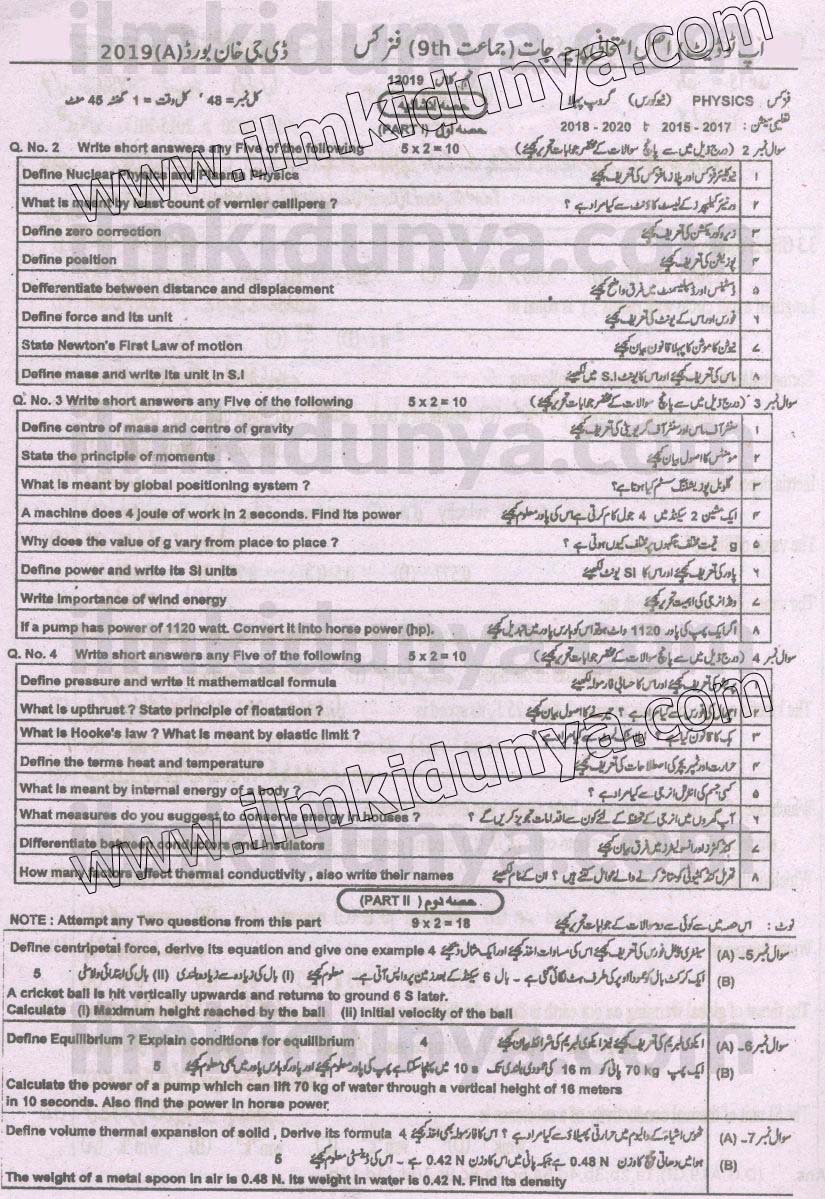 اپ ٹو ڈیٹ اصل امتحانی پرچہ جات (جماعت 9th) فزکس ڈی جی خان بورڈ (A) 2019
12019
فزکس PHYSICS (نیو کورس) گروپ پہلا حصہ انشائیہ کل نمبر = 48 کل وقت = 1 گھنٹہ 45 منٹ
تعلیمی سیشن : 2015 - 2017 تا 2018 - 2020 (PART I) حصہ اول
Q. No. 2 Write short answers any Five of the following 5 x 2 = 10 سوال نمبر 2 (درج ذیل میں سے پانچ سوالات کے مختصر جوابات تحریر کیجئے)
Define Nuclear Physics and Plasma Physics نیوکلیئر فزکس اور پلازما فزکس کی تعریف کیجئے ۱
What is meant by least count of vernier callipers ? ورنیئر کیلیپرز کے لیسٹ کاؤنٹ سے کیا مراد ہے ؟ ۲
Define zero correction زیرو کوریکشن کی تعریف کیجئے ۳
Define position پوزیشن کی تعریف کیجئے ۴
Defferentiate between distance and displacement ڈسٹینس اور ڈسپلیسمنٹ میں فرق واضح کیجئے ۵
Define force and its unit . فورس اور اس کے یونٹ کی تعریف کیجئے ۶
State Newton's First Law of motion نیوٹن کا موشن کا پہلا قانون بیان کیجئے ۷
Define mass and write its unit in S.I ماس کی تعریف کیجئے اور اس کا یونٹ S.I میں لکھیئے
Q. No. 3 Write short answers any Five of the following 5 x 2 = 10 سوال نمبر 3 (درج ذیل میں سے پانچ سوالات کے مختصر جوابات تحریر کیجئے)
Define centre of mass and centre of gravity سنٹر آف ماس اور سنٹر آف گریویٹی کی تعریف کیجئے ۱
State the principle of moments مومنٹس کا اصول بیان کیجئے ۲
What is meant by global positioning system ? گلوبل پوزیشننگ سسٹم کیا ہوتا ہے؟ ۳
A machine does 4 joule of work in 2 seconds. Find its power ایک مشین 2 سیکنڈ میں 4 جول کام کرتی ہے اس کی پاور معلوم کیجئے ۴
Why does the value of g vary from place to place ? g کی قیمت مختلف جگہوں پر مختلف کیوں ہوتی ہے ؟ ۵
Define power and write its SI units پاور کی تعریف کیجئے اور اس کا SI یونٹ لکھیئے ۶
Write importance of wind energy ونڈ انرجی کی اہمیت تحریر کیجئے ۷
If a pump has power of 1120 watt. Convert it into horse power (hp). اگر ایک پمپ کی پاور 1120 واٹ ہو تو اس کو ہارس پاور میں تبدیل کیجئے ۸
Q. No. 4 Write short answers any Five of the following 5 x 2 = 10 سوال نمبر 4 (درج ذیل میں سے پانچ سوالات کے مختصر جوابات تحریر کیجئے)
Define pressure and write it mathematical formula پریشر کی تعریف کیجئے اور اس کا حسابی فارمولہ لکھیئے
What is upthrust ? State principle of floatation ? فورس سے کیا مراد ہے ؟ تیرنے کا اصول بیان کیجئے
What is Hooke's law ? What is meant by elastic limit ? ہک کا قانون کیا ہے ؟ سے کیا مراد ہے ؟ ۳
Define the terms heat and temperature حرارت اور ٹمپریچر کی اصطلاحات کی تعریف کیجئے ۴
What is meant by internal energy of a body ? کسی جسم کی انٹرنل انرجی سے کیا مراد ہے ؟ ۵
What measures do you suggest to conserve energy in houses ? آپ گھروں میں انرجی کے تحفظ کے لئے کون سے اقدامات تجویز کریں گے ؟ ۶
Differentiate between conductors and insulators کنڈکٹرز اور انسولیٹرز میں فرق بیان کیجئے ۷
How many factors effect thermal conductivity , also write their names تھرمل کنڈکٹیویٹی کو متاثر کرنے والے عوامل کتنے ہیں ؟ ان کے نام لکھیئے ۸
(PART II) حصہ دوم
NOTE : Attempt any Two questions from this part 9 x 2 = 18 نوٹ : اس حصہ میں سے کوئی سے دو سوالات کے جوابات تحریر کیجئے
Define centripetal force, derive its equation and give one example 4 سینٹری پیٹل فورس کی تعریف کیجئے اس کی مساوات اخذ کیجئے اور ایک مثال دیجئے سوال نمبر 5- (A)
5 ایک کرکٹ بال کو عموداً اوپر کی طرف ہٹ لگائی گئی ہے - بال 6 سیکنڈ کے بعد زمین پر واپس آتی ہے - معلوم کیجئے (i) بال کی زیادہ سے زیادہ بلندی (ii) بال کی ابتدائی ولاسٹی (B)
A cricket ball is hit vertically upwards and returns to ground 6 S later.
Calculate (i) Maximum height reached by the ball (ii) Initial velocity of the ball
Define Equilibrium ? Explain conditions for equilibrium 4 ایکوی لبریم کی تعریف کیجئے نیز ایکوی لبریم کی شرائط بیان کیجئے سوال نمبر 6- (A)
5 ایک پمپ 70 kg پانی کو 16 m کی عمودی بلندی تک 10 s میں پہنچا سکتا ہے پمپ کی پاور معلوم کیجئے اور پاور کو ہارس پاور میں بھی معلوم کیجئے (B)
Calculate the power of a pump which can lift 70 kg of water through a vertical height of 16 meters
in 10 seconds. Also find the power in horse power
Define volume thermal expansion of solid , Derive its formula 4 ٹھوس اشیاء کے والیوم میں حرارتی پھیلاؤ سے کیا مراد ہے ؟ اس کا فارمولہ بھی اخذ کیجئے سوال نمبر 7- (A)
5 ہوا میں دھاتی چمچ کا وزن 0.48 N ہے جبکہ پانی میں اس کا وزن 0.42 N ہے - اس کی ڈینسٹی معلوم کیجئے (B)
The weight of a metal spoon in air is 0.48 N. Its weight in water is 0.42 N. Find its density
www.ilmkidunya.com
www.ilmkidunya.com